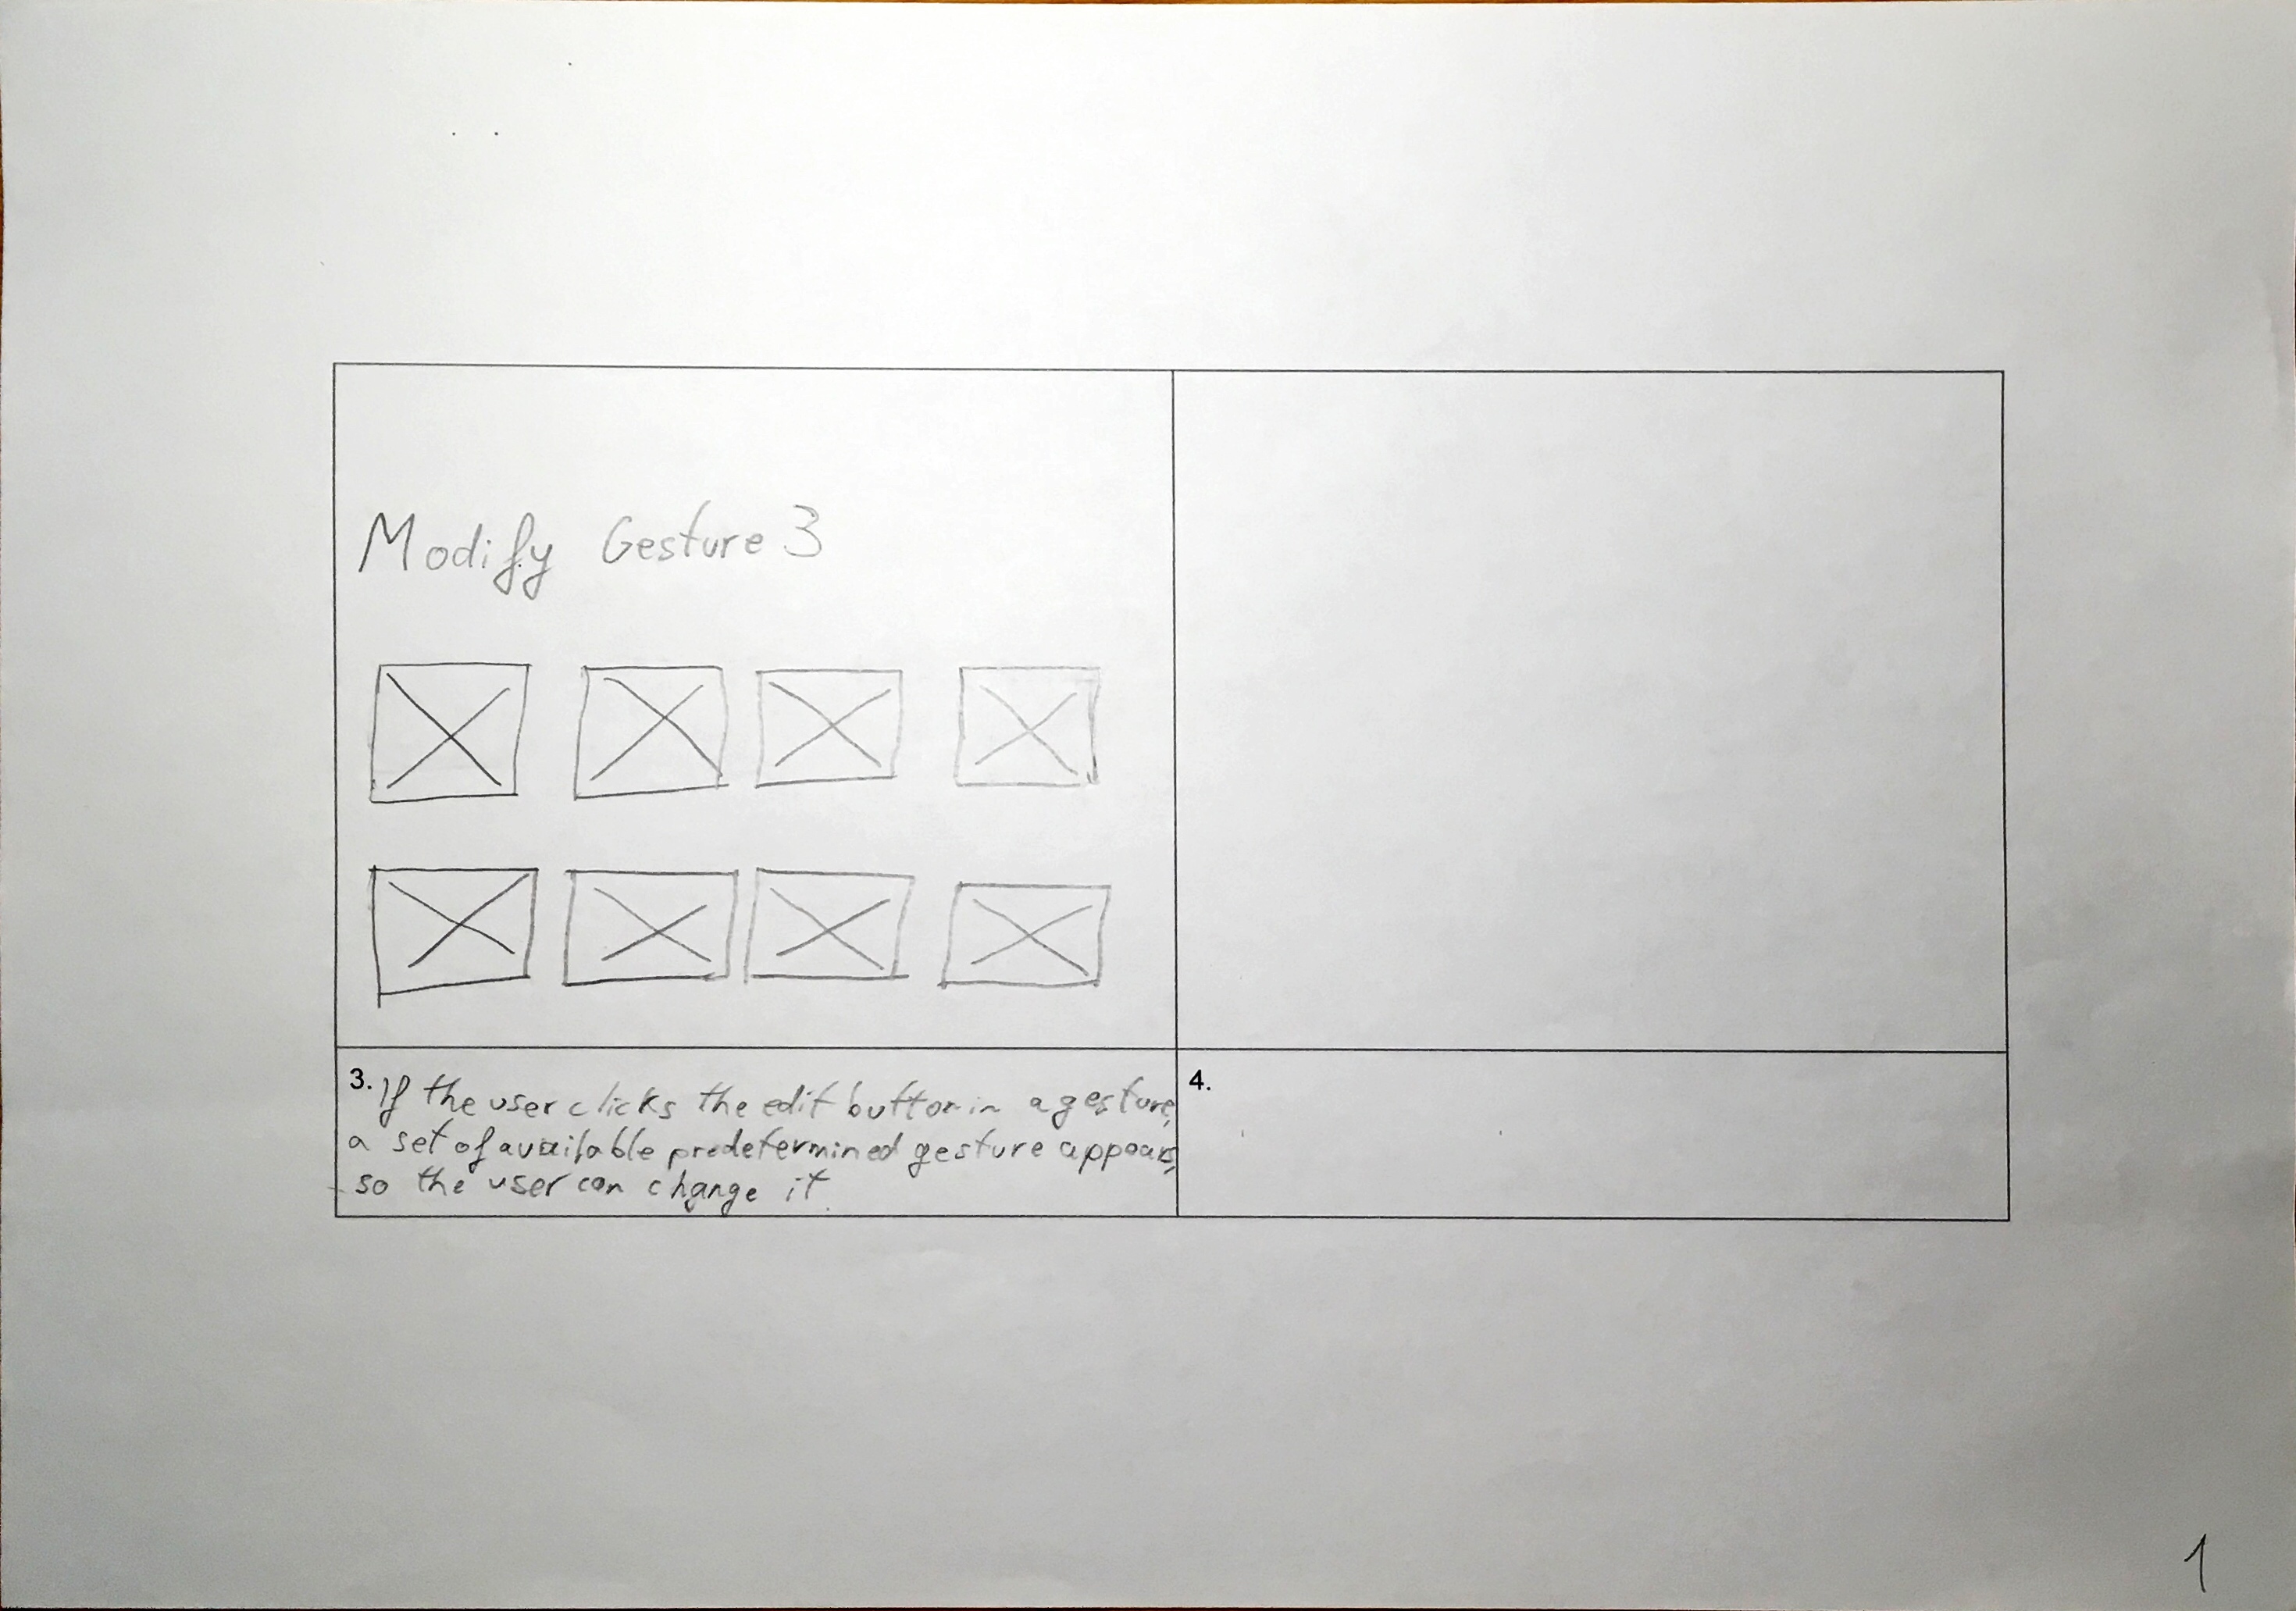 Modify Gesture 3
3. If the user clicks the edit button in a gesture,
a set of available predetermined gesture appears,
so the user can change it.
4.
1